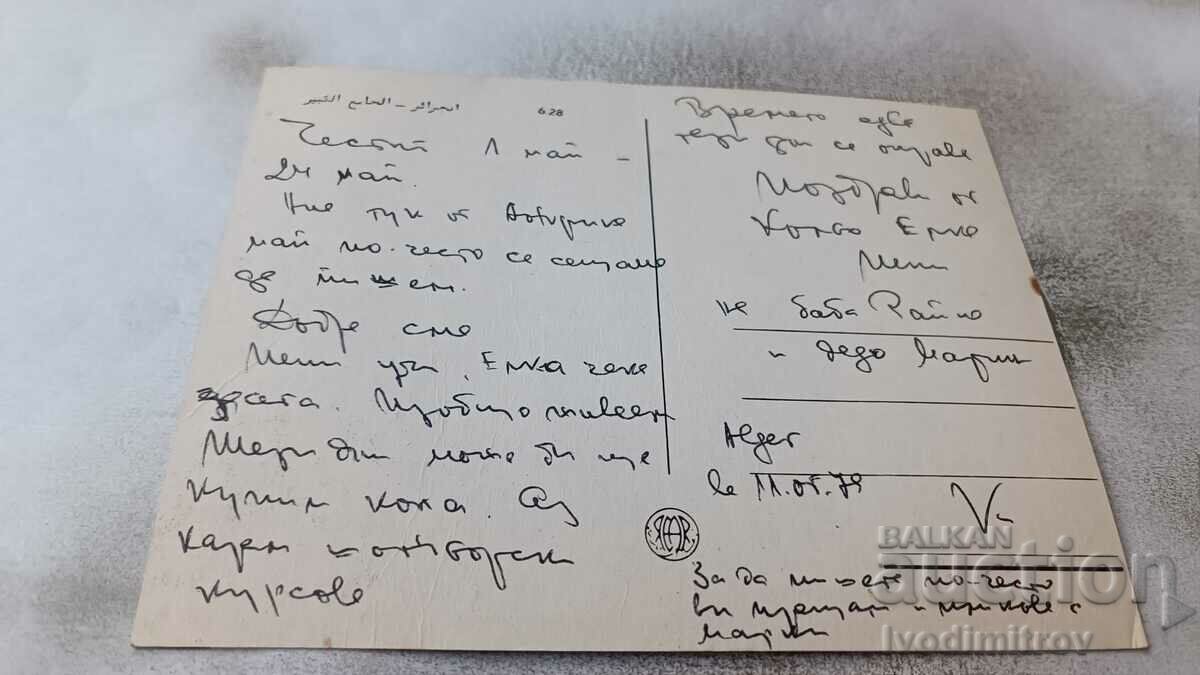 الجزائر - الجامع الكبير
628
Честит 1 май -
24 май.
Ние тук от
май по-често се сещаме
да пишем.
Добре сме
Мени учи, Емка чака
децата. Изобщо живеем
Тези дни може би ще
купим кола. Аз
карам шофьорски
курсове
Времето едва
тези дни се оправя
Поздрави от
Кольо Емка
Мени
на баба Райна
и дядо Марин
Alger
le 11.05.79
За да пишете по-често
ви пращам и пликове с
марки
BALKAN
auction
Ivodimitrov